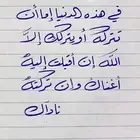 في هذه الدنيا إما أن
تتركك أو يتركك إلا
الله إن أقبلت إليه
أغناك وإن تركته
ناداك